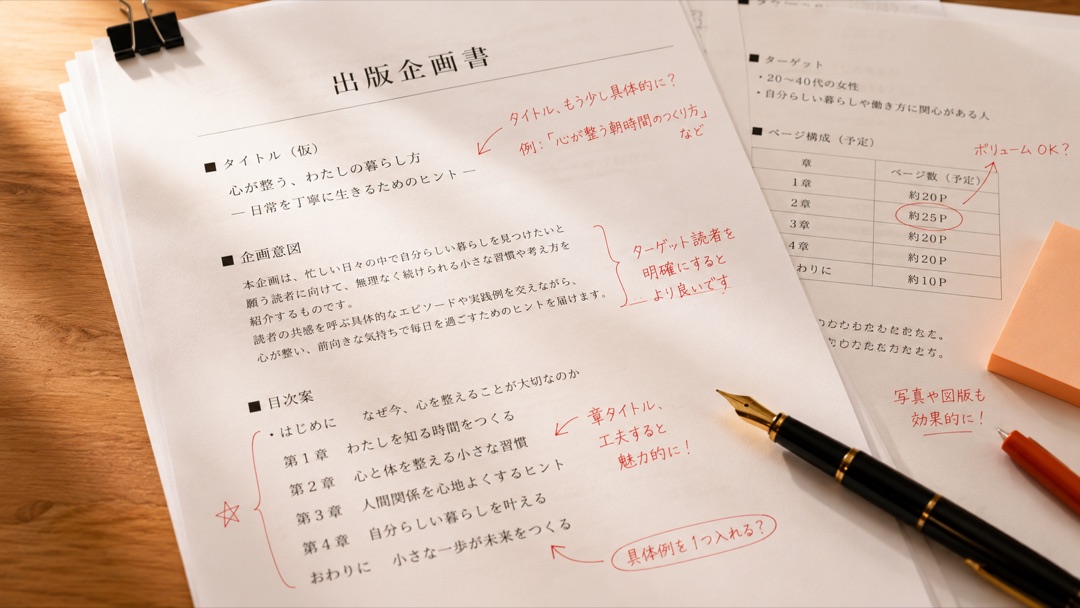 出版企画書
■ タイトル（仮）
心が整う、わたしの暮らし方
― 日常を丁寧に生きるためのヒント ―
タイトル、もう少し具体的に？
例：「心が整う朝時間のつくり方」
など
■ 企画意図
本企画は、忙しい日々の中で自分らしい暮らしを見つけたいと
願う読者に向けて、無理なく続けられる小さな習慣や考え方を
紹介するものです。
読者の共感を呼ぶ具体的なエピソードや実践例を交えながら、
心が整い、前向きな気持ちで毎日を過ごすためのヒントを届けます。
ターゲット読者を
明確にすると
… より良いです
■ 目次案
・はじめに　なぜ今、心を整えることが大切なのか
第1章　わたしを知る時間をつくる
第2章　心と体を整える小さな習慣
第3章　人間関係を心地よくするヒント
第4章　自分らしい暮らしを叶える
おわりに　小さな一歩が未来をつくる
章タイトル、
工夫すると
魅力的に！
具体例を1つ入れる？
■ ターゲット
・20〜40代の女性
・自分らしい暮らしや働き方に関心がある人
■ ページ構成（予定）
ボリュームOK？
章　ページ数（予定）
1章　約20P
2章　約25P
3章　約20P
4章　約20P
わりに　約10P
写真や図版も
効果的に！